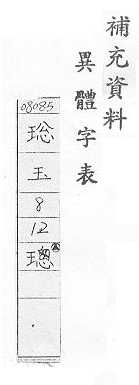 補充資料
異體字表
08085
聡
玉
8
12
璁